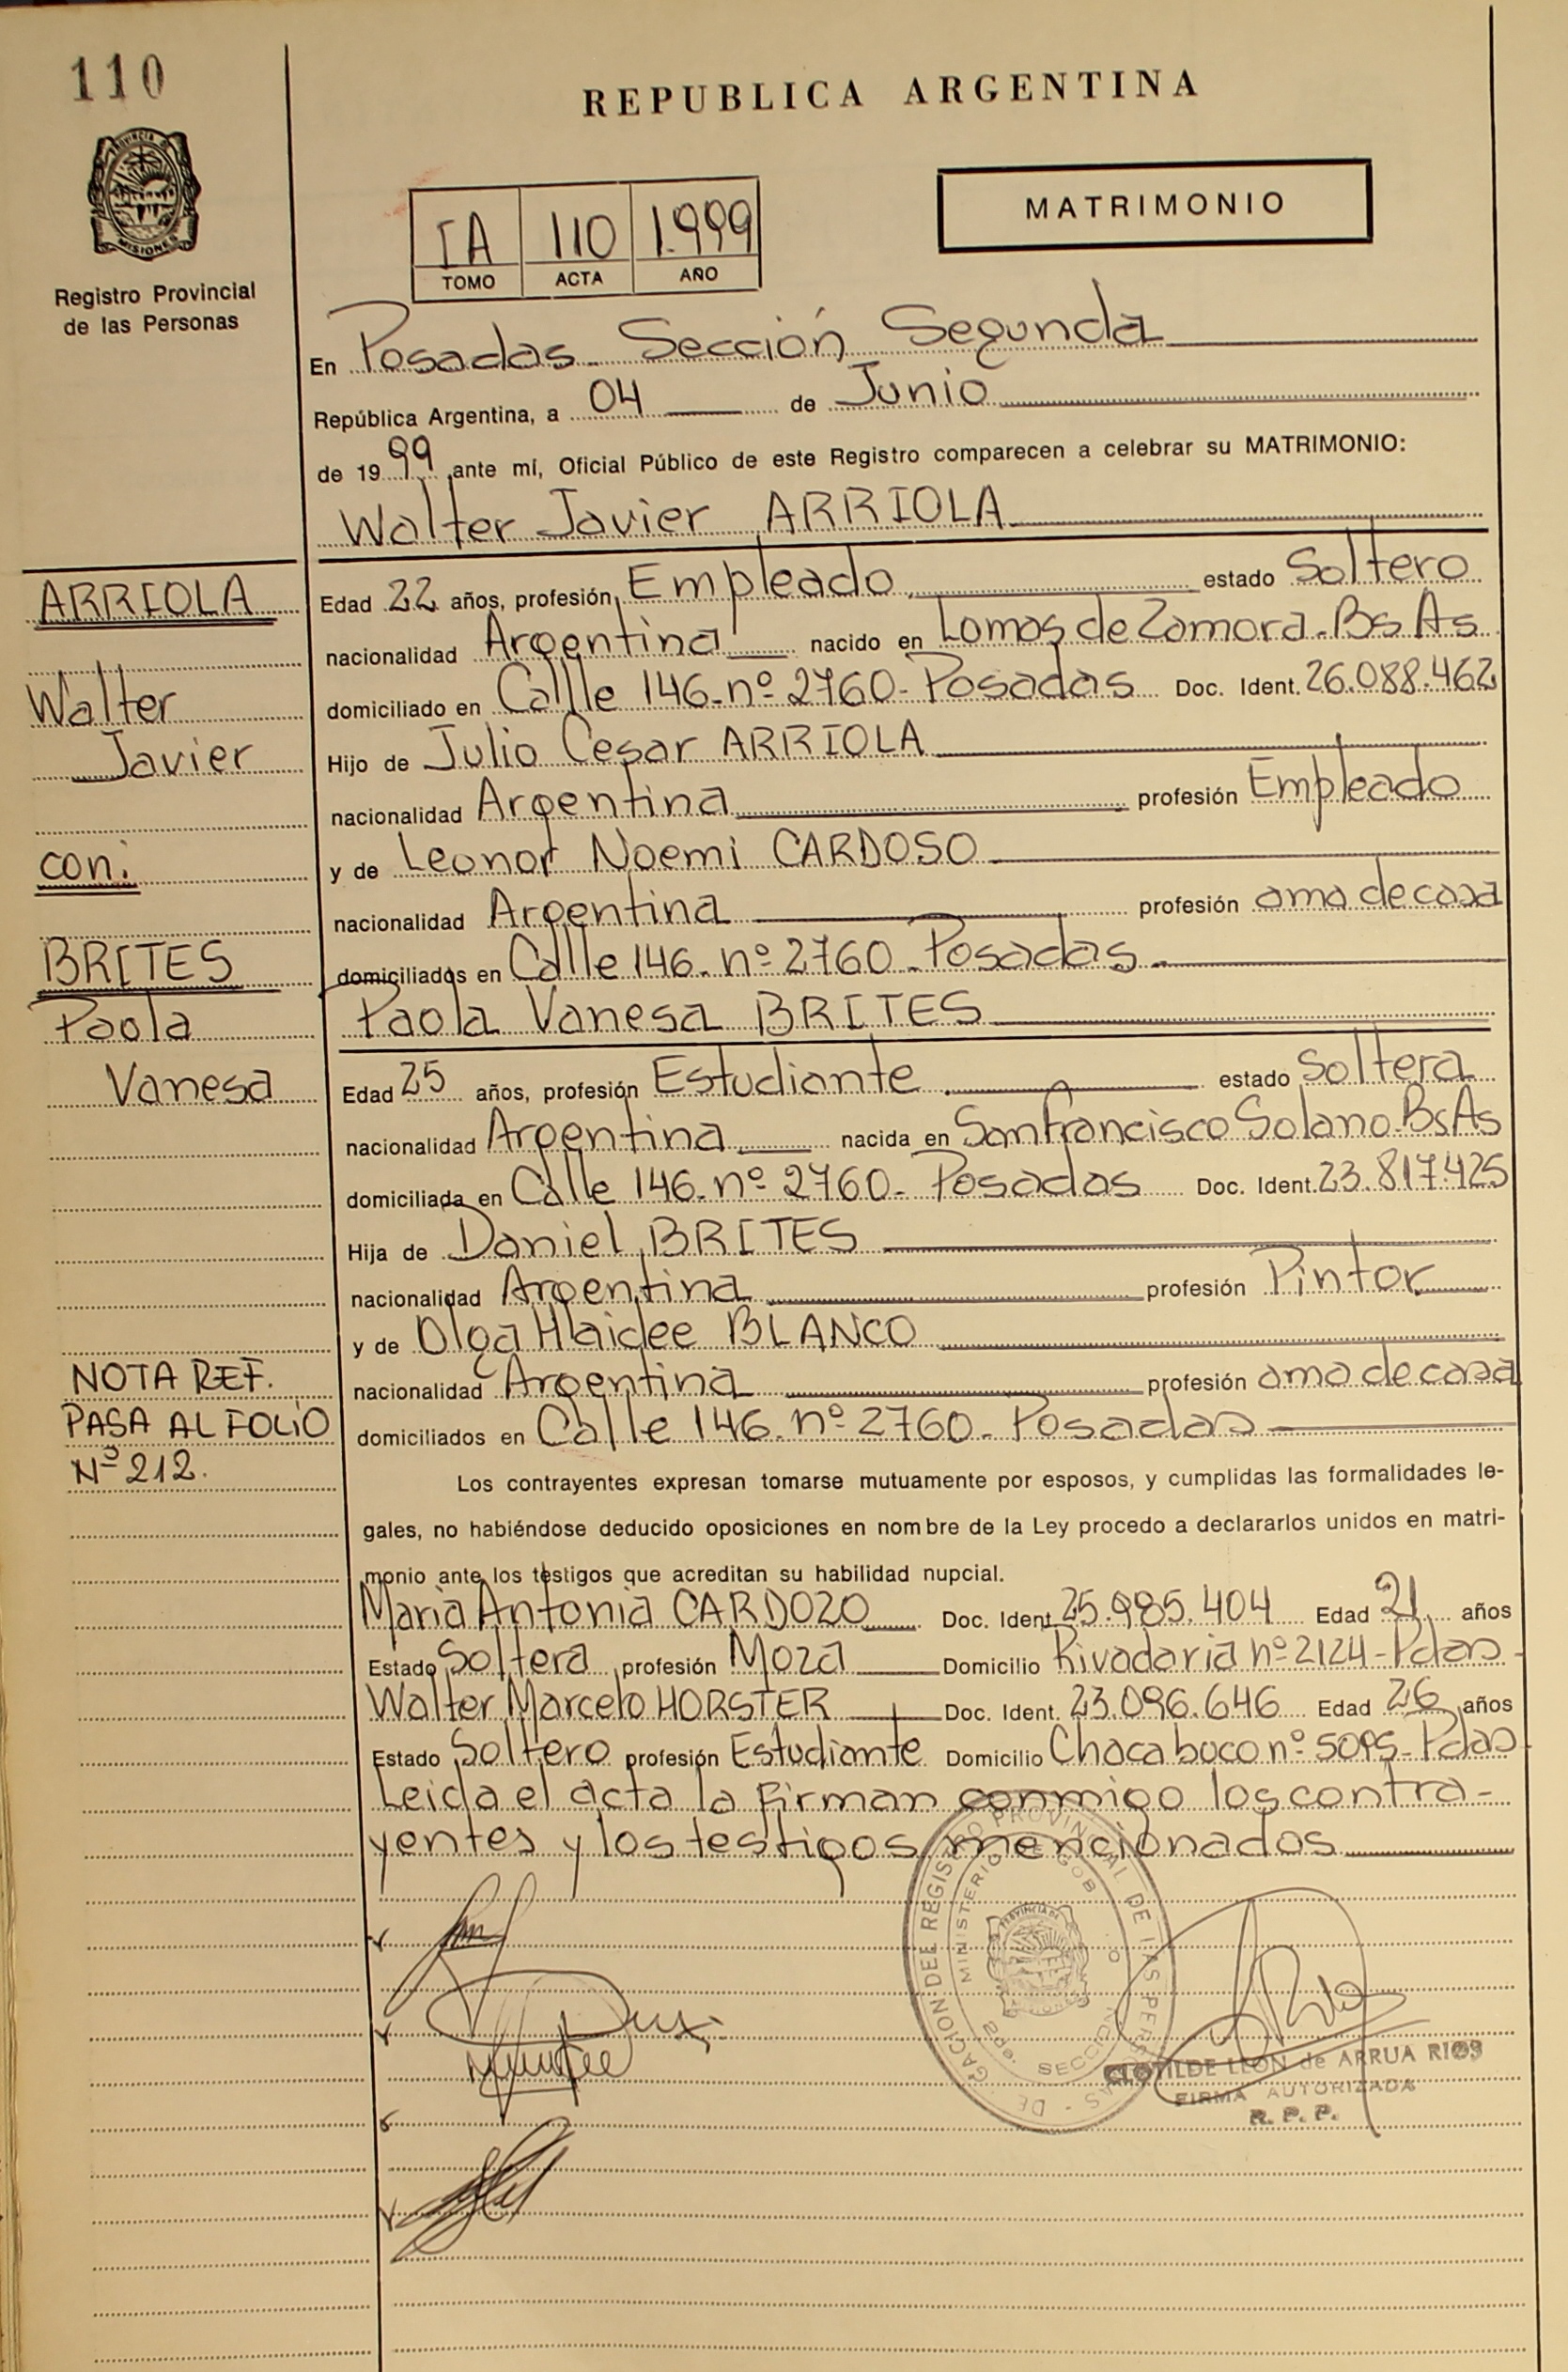 110
PROVINCIA DE
MISIONES
Registro Provincial
de las Personas
REPUBLICA ARGENTINA
IA 110 1.999
TOMO ACTA AÑO
MATRIMONIO
En Posadas - Sección Segunda
República Argentina, a 04 de Junio
de 19 99 ante mí, Oficial Público de este Registro comparecen a celebrar su MATRIMONIO:
Walter Javier ARRIOLA
Edad 22 años, profesión Empleado estado Soltero
nacionalidad Argentina nacido en Lomas de Zamora - Bs As
domiciliado en Callle 146 - nº 2760 - Posadas Doc. Ident. 26.088.462
Hijo de Julio Cesar ARRIOLA
nacionalidad Argentina profesión Empleado
y de Leonor Noemi CARDOSO
nacionalidad Argentina profesión ama de casa
domiciliados en Calle 146 - nº 2760 - Posadas
Paola Vanesa BRITES
Edad 25 años, profesión Estudiante estado Soltera
nacionalidad Argentina nacida en San Francisco Solano - Bs As
domiciliada en Calle 146 - nº 2760 - Posadas Doc. Ident. 23.817.425
Hija de Daniel BRITES
nacionalidad Argentina profesión Pintor
y de Olga Haidee BLANCO
nacionalidad Argentina profesión ama de casa
domiciliados en Calle 146 - nº 2760 - Posadas
Los contrayentes expresan tomarse mutuamente por esposos, y cumplidas las formalidades le-
gales, no habiéndose deducido oposiciones en nombre de la Ley procedo a declararlos unidos en matri-
monio ante los testigos que acreditan su habilidad nupcial.
Maria Antonia CARDOZO Doc. Ident. 25.985.404 Edad 21 años
Estado Soltera profesión Moza Domicilio Rivadaria nº 2124 - Pdas
Walter Marcelo HORSTER Doc. Ident. 23.096.646 Edad 26 años
Estado Soltero profesión Estudiante Domicilio Chacabuco nº 5095 - Pdas
Leida el acta la firman conmigo los contra-
yentes y los testigos mencionados
ARRIOLA
Walter
Javier
con:
BRITES
Paola
Vanesa
NOTA REF.
PASA AL FOLIO
Nº 212.
REGISTRO PROVINCIAL DE LAS
MINISTERIO DE GOB
SECCION
CLOTILDE LEON de ARRUA RIOS
FIRMA AUTORIZADA
R. P. P.